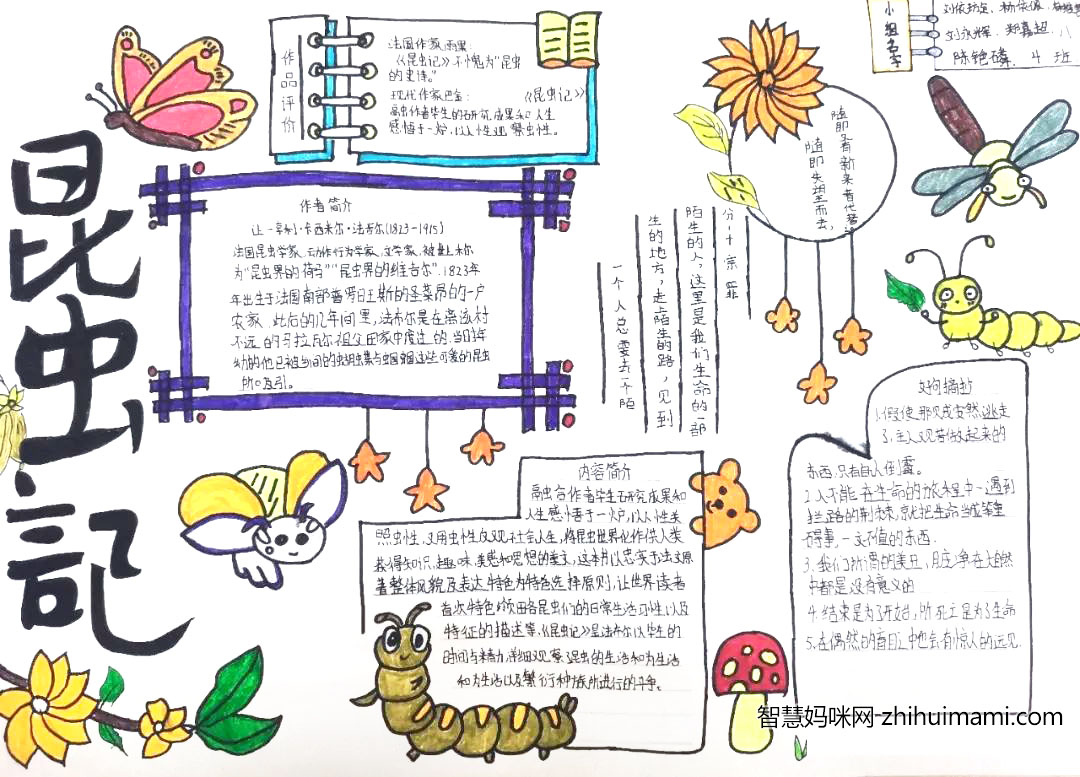 昆虫記
作品评价
法国作家雨果:
《昆虫记》不愧为"昆虫
的史诗。"
现代作家巴金:《昆虫记》
作者毕生的研究成果和人生
感悟于一炉,以人性观察虫性。
小组名字
八
4班
随即看新来者代替
随即失望而去,
分十宗罪
陌生的人,这里是我们生命的一部
生的地方,走陌生的路,见到
一个人总要去一个陌
作者简介
让-亨利·卡西米尔·法布尔(1823-1915)
法国昆虫学家、动物行为学家、文学家,被世人称
为"昆虫界的荷马""昆虫界的维吉尔".1823年
年出生于法国南部普罗旺斯的圣莱昂的一户
农家,此后的几年间里,法布尔是在离该村
不远的马拉瓦尔祖父母家中度过的,当时年
幼的他已被乡间的蝴蝶与蝈蝈这些可爱的昆虫
所吸引。
内容简介
作者毕生研究成果和
人生感悟于一炉,以人性关
照虫性,又用虫性反观社会人生,将昆虫世界化作供人类
获得知识、趣味、美感和思想的美文,这本书以忠实于法文原
著整体风貌及表达特色为特色选择原则,让世界读者
首次昆虫们的日常生活习性,以及
特征的描述等,《昆虫记》是法布尔以毕生的
时间与精力,详细观察了昆虫的生活和为生活
和为生活以及繁衍种族所进行的斗争。
文句摘抄
1.假使那只安然逃走
主人观若做起来的
东西,只有自认倒霉。
2.人不能在生命的旅程中一遇到
拦路的荆棘,就把生命当破
得事一文不值的东西.
3.我们所谓的美丑,肮脏净在大自然
中都是没有意义的
4.结束是为了开始,所死亡是为了生命
5.在偶然的盲目之中也会有惊人的远见.
智慧妈咪网-zhihuimami.com